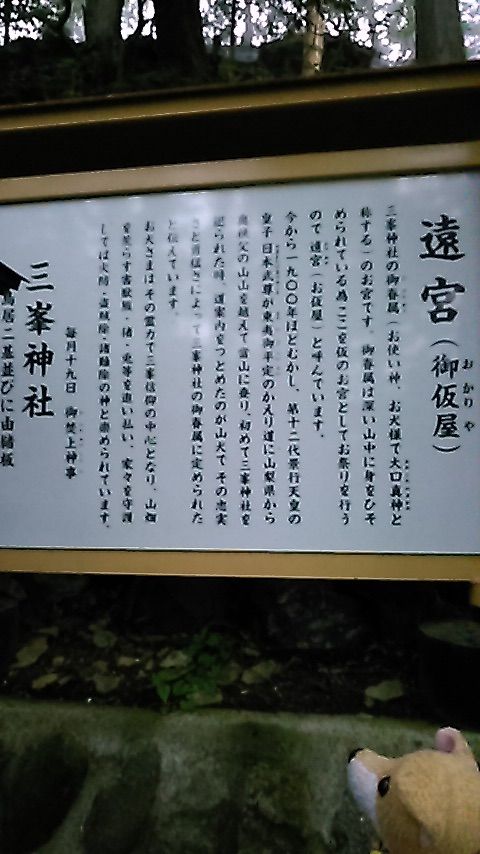 遠宮(御仮屋)
おかりや
三峯神社の御眷属(お使い神、お犬様で大口真神と
称する)のお宮です。御眷属は深い山中に身をひそ
められている為ここを仮のお宮としてお祭りを行う
ので遠宮(お仮屋)と呼んでいます。
今から一九〇〇年ほどむかし、第十二代景行天皇の
皇子日本武尊が東夷御平定のかえり道に山梨県から
奥秩父の山山を越えて当山に登り、初めて三峯神社を
祀られた時、道案内をつとめたのが山犬でその忠実
さと勇猛さによって三峯神社の御眷属に定められた
と伝えています。
お犬さまはその霊力で三峯信仰の中心となり、山畑
を荒らす害獣猪・鹿・兎等を追い払い、家々を守護
しては火防・盗賊除・諸難除の神と崇められています。
毎月十九日 御焚上神事
三峯神社
鳥居二基並びに由緒板